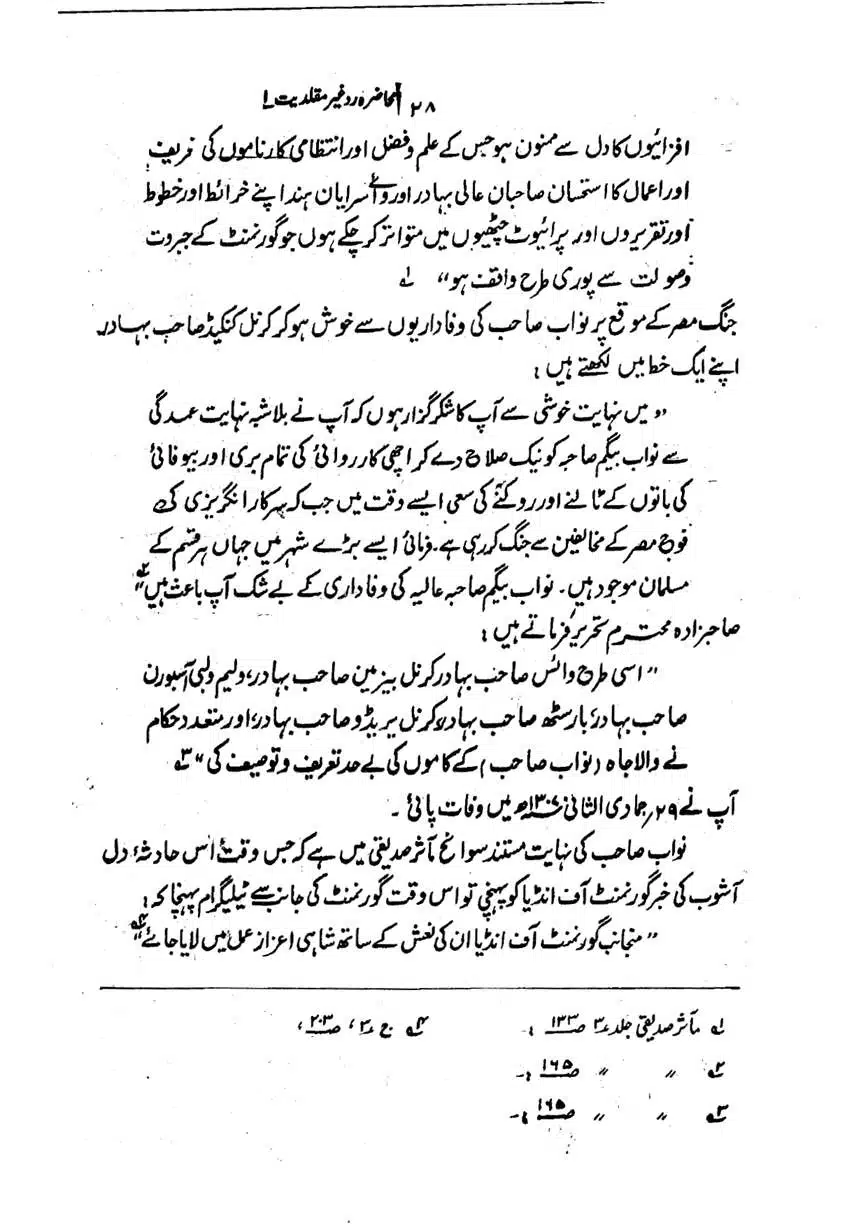 ۲۸ محاضرہ رد غیر مقلدیت ۱
افزائیوں کا دل سے ممنون ہو جس کے علم و فضل اور انتظامی کارناموں کی تعریف
اور اعمال کا استحسان صاحبان عالی بہادر اور وائسرایان ہند اپنے خرائط اور خطوط
اور تقریروں اور پرائیوٹ چٹھیوں میں متواتر کرچکے ہوں جو گورنمنٹ کے جبروت
وصولت سے پوری طرح واقف ہو“ ۱ـہ
جنگ مصر کے موقع پر نواب صاحب کی وفاداریوں سے خوش ہو کر کرنل کنکیڈ صاحب بہادر
اپنے ایک خط میں لکھتے ہیں :
”میں نہایت خوشی سے آپ کا شکر گزار ہوں کہ آپ نے بلاشبہ نہایت عمدگی
سے نواب بیگم صاحبہ کو نیک صلاح دے کر اچھی کارروائی کی تمام بری اور بیوفائی
کی باتوں کے ٹالنے اور روکنے کی سعی ایسے وقت میں جب کہ سرکار انگریزی کی
فوج مصر کے مخالفین سے جنگ کر رہی ہے۔ فرمائی ایسے بڑے شہر میں جہاں ہر قسم کے
مسلمان موجود ہیں۔ نواب بیگم صاحبہ عالیہ کی وفاداری کے بے شک آپ باعث ہیں“ ۲ـہ
صاحبزادہ محترم تحریر فرماتے ہیں :
”اسی طرح وائس صاحب بہادر کرنل بیزمین صاحب بہادر، ولیم ولبی آسبورن
صاحب بہادر، بارسٹھ صاحب بہادر، کرنل بریڈو صاحب بہادر، اور متعدد حکام
نے والا جاہ (نواب صاحب) کے کاموں کی بے حد تعریف و توصیف کی“ ۳ـہ
آپ نے ۲۹؍ جمادی الثانی ۱۳۰۷ھ میں وفات پائی ۔
نواب صاحب کی نہایت مستند سوانح مآثر صدیقی میں ہے کہ جس وقت اس حادثۂ دل
آشوب کی خبر گورنمنٹ آف انڈیا کو پہنچی تو اس وقت گورنمنٹ کی جانب سے ٹیلیگرام پہنچا کہ :
”منجانب گورنمنٹ آف انڈیا ان کی نعش کے ساتھ شاہی اعزاز عمل میں لایا جائے“ ۴ـہ
۱ـہ مآثر صدیقی جلد ۳ صـ ۱۳۳ :۔ ۴ـہ ج ۳، صـ ۲۰۳،
۲ـہ ” ” صـ ۱۶۵ :۔
۳ـہ ” ” صـ ۱۶۵ :۔